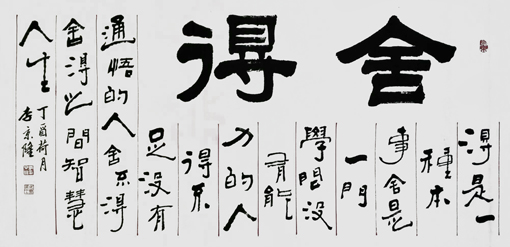 舍得
得是一
種本
事舍是
一門
學問没
有能
力的人
得不
足没有
通悟的人舍不得
舍得之間智慧
人生
丁酉荷月